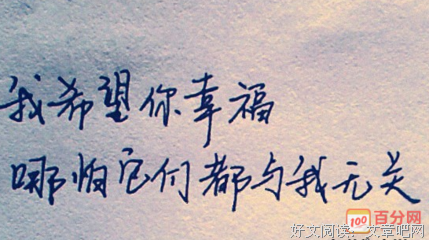 我希望你幸福
哪怕它们都与我无关
100 百分网
好文阅读-文章吧网